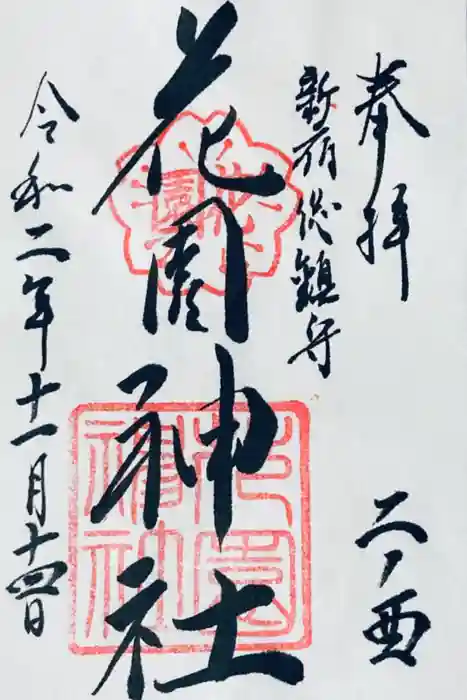 奉拝
二ノ酉
新宿総鎮守
花園神社
令和二年十一月十四日
花園神社